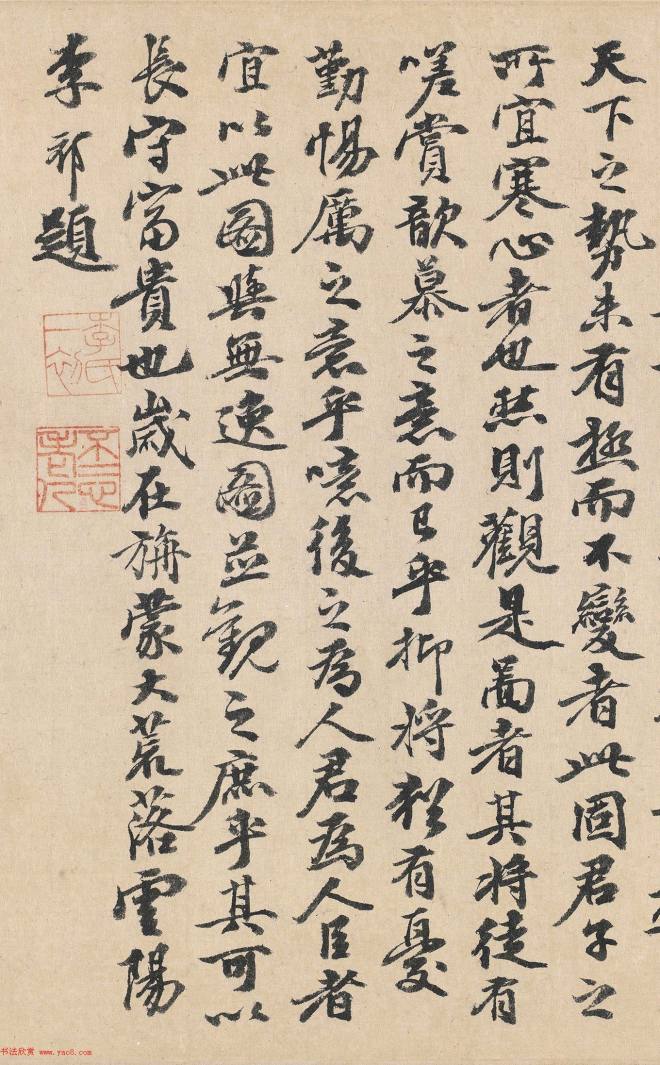 天下之勢未有極而不變者此固君子之
所宜寒心者也然則觀是啚者其將徒有
嗟賞歆慕之意而已乎抑將猶有憂
勤惕厲之意乎噫後之為人君為人臣者
宜以此圖與無逸圖並觀之庶乎其可以
長守富貴也歲在旃蒙大荒落雲陽
李祁題
李氏
不二心
老人
书法欣赏 www.yac8.com